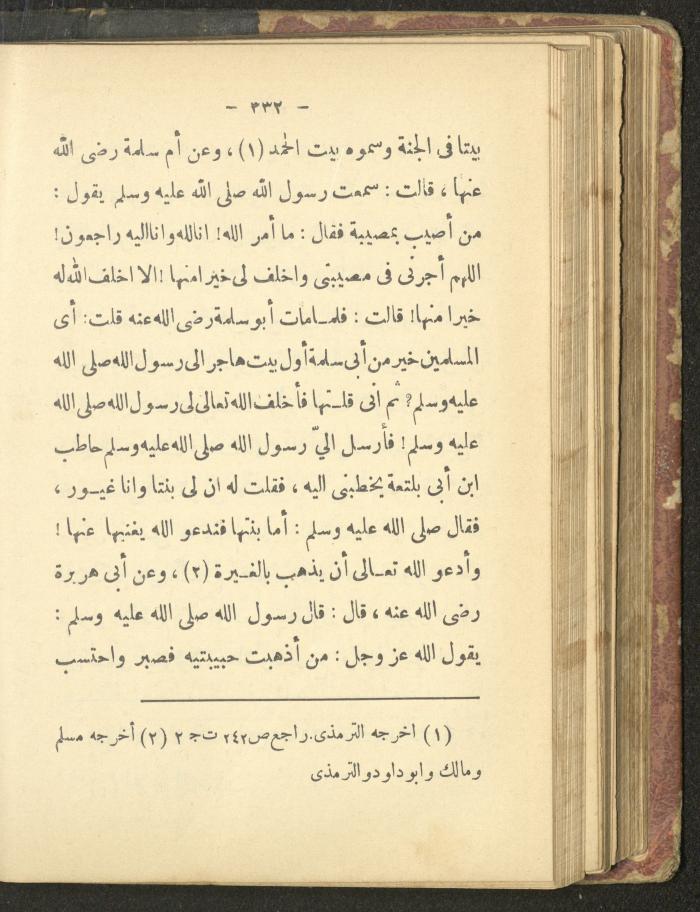 - ٣٣٢ -
بيتا فى الجنة وسموه بيت الحمد (١) ، وعن أم سلمة رضى الله
عنها ، قالت : سمعت رسول الله صلى الله عليه وسلم يقول :
من أصيب بمصيبة فقال : ما أمر الله! انالله وانااليه راجعون!
اللهم أجرنى فى مصيبتى واخلف لى خيرامنها !الا اخلف الله له
خيرا منها! قالت : فلمامات أبوسلمة رضى الله عنه قلت: أى
المسلمين خير من أبى سلمة أول بيت هاجر الى رسول الله صلى الله
عليه وسلم؟ ثم انى قلتها فأخلف الله تعالى لى رسول الله صلى الله
عليه وسلم! فأرسل اليّ رسول الله صلى الله عليه وسلم حاطب
ابن أبى بلتعة يخطبنى اليه ، فقلت له ان لى بنتا وانا غيور ،
فقال صلى الله عليه وسلم : أما بنتها فندعو الله يغنيها عنها !
وأدعو الله تعالى أن يذهب بالغيرة (٢) ، وعن أبى هريرة
رضى الله عنه ، قال : قال رسول الله صلى الله عليه وسلم :
يقول الله عز وجل : من أذهبت حبيبتيه فصبر واحتسب
(١) اخرجه الترمذى.راجع ص٢٤٢ ت ج ٢ (٢) أخرجه مسلم
ومالك وابوداود والترمذى